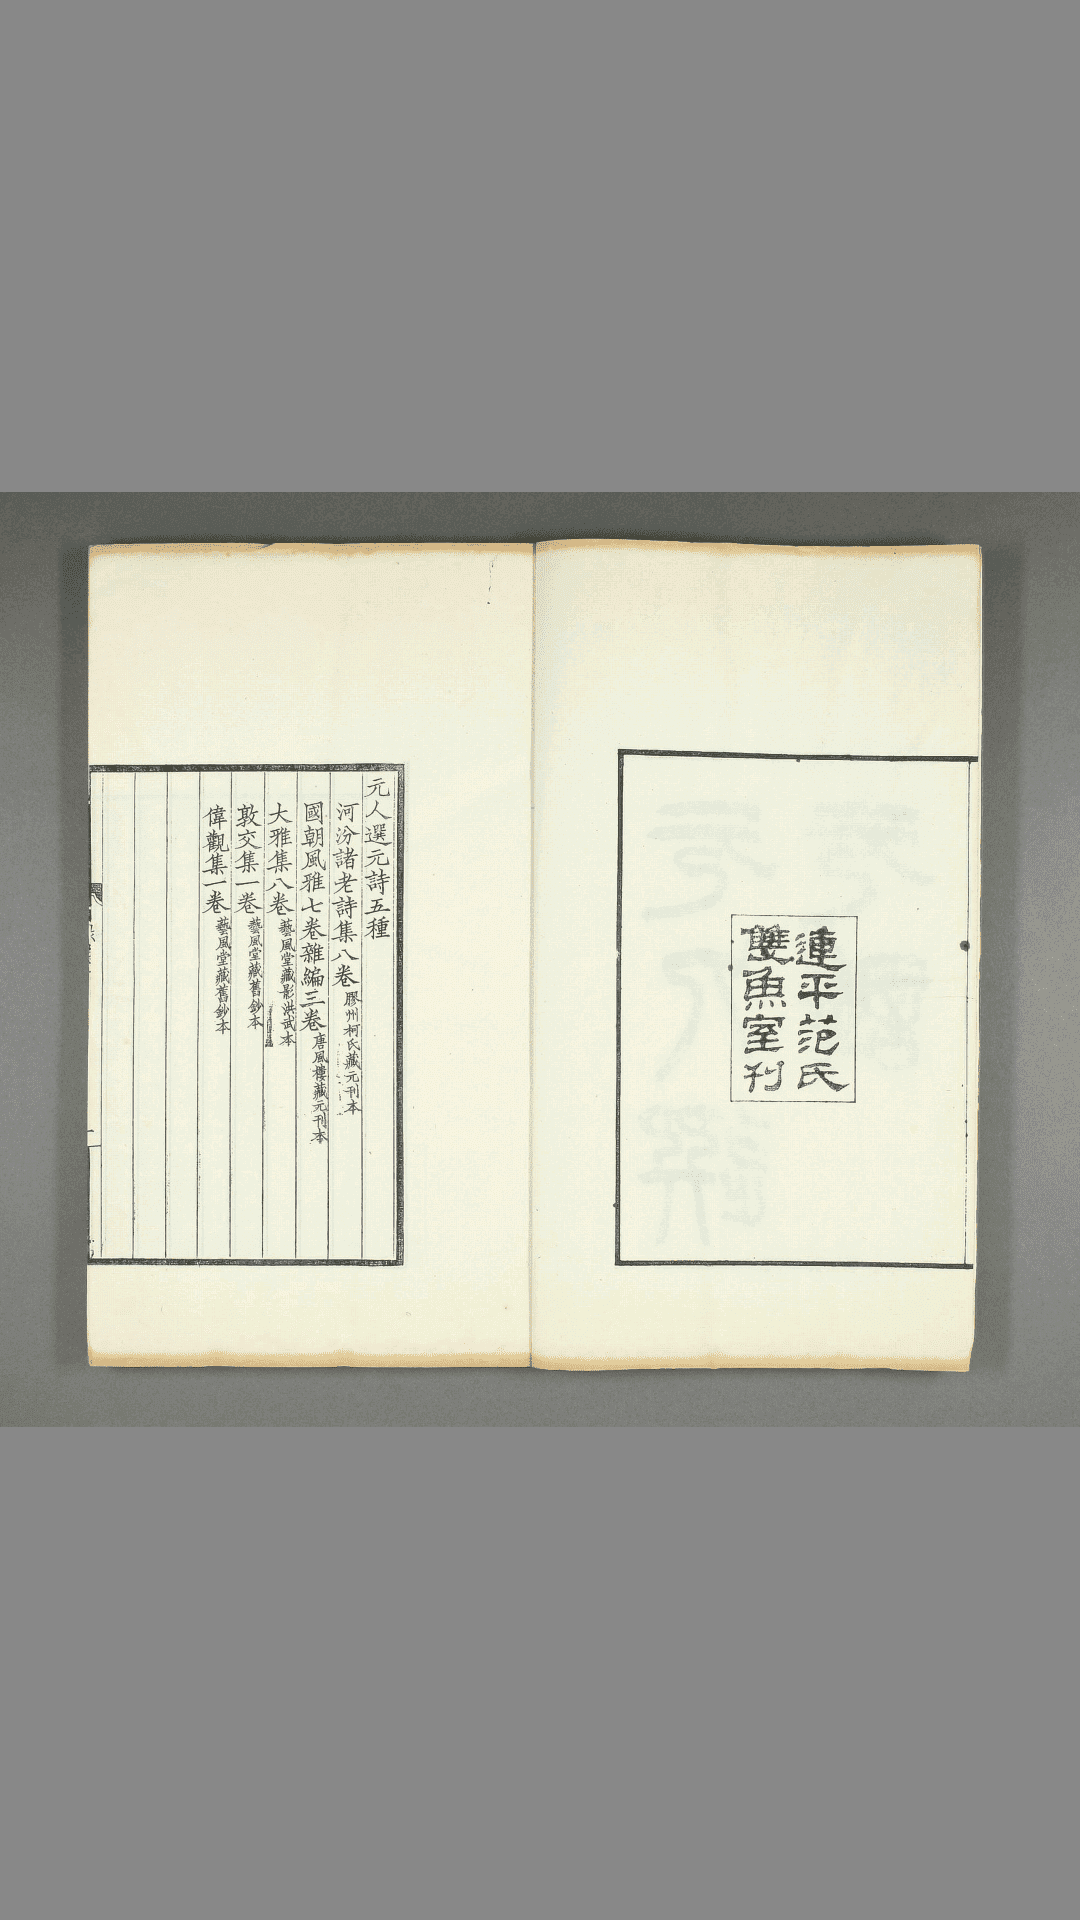 連平范氏
雙魚室刊
元人選元詩五種
河汾諸老詩集八卷膠州柯氏藏元刊本
國朝風雅七卷雜編三卷唐風樓藏元刊本
大雅集八卷藝風堂藏影洪武本
敦交集一卷藝風堂藏舊鈔本
偉觀集一卷藝風堂藏舊鈔本